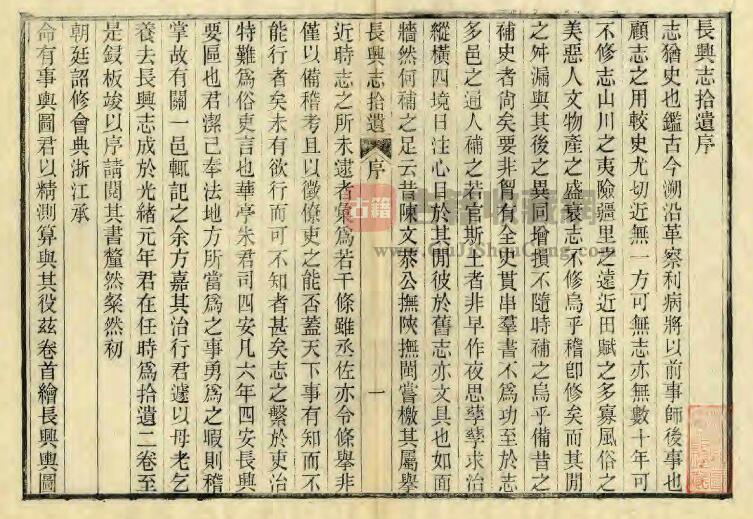 長興志拾遺序
志猶史也鑑古今溯沿革察利病將以前事師後事也
顧志之用較史尤切近無一方可無志亦無數十年可
不修志山川之夷險疆里之遠近田賦之多寡風俗之
美惡人文物產之盛衰志不修烏乎稽卽修矣而其閒
之舛漏與其後之異同增損不隨時補之烏乎備昔之
補史者尚矣要非胷有全史貫串羣書不爲功至於志
多邑之通人補之若官斯土者非早作夜思孳孳求治
縱橫四境日注心目於其閒彼於舊志亦文具也如面
牆然何補之足云昔陳文恭公撫陝撫閩嘗檄其屬舉
長興志拾遺 序 一
近時志之所未逮者彙爲若干條雖丞佐亦令條舉非
僅以備稽考且以徵僚吏之能否蓋天下事有知而不
能行者矣未有欲行而可不知者甚矣志之繫於吏治
特難爲俗吏言也華亭朱君司四安凡六年四安長興
要區也君潔己奉法地方所當爲之事勇爲之暇則稽
掌故有關一邑輒記之余方嘉其治行君遽以母老乞
養去長興志成於光緒元年君在任時爲拾遺二卷至
是鋟板竣以序請閱其書釐然粲然初
朝廷詔修會典浙江承
命有事輿圖君以精測算與其役茲卷首繪長興輿圖
古籍